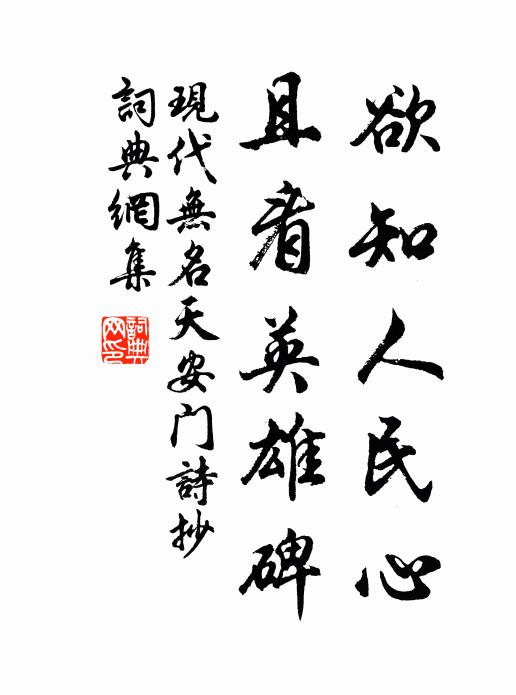 欲知人民心
且看英雄碑
現代無名天安门詩抄
詞典網集
詞典网印